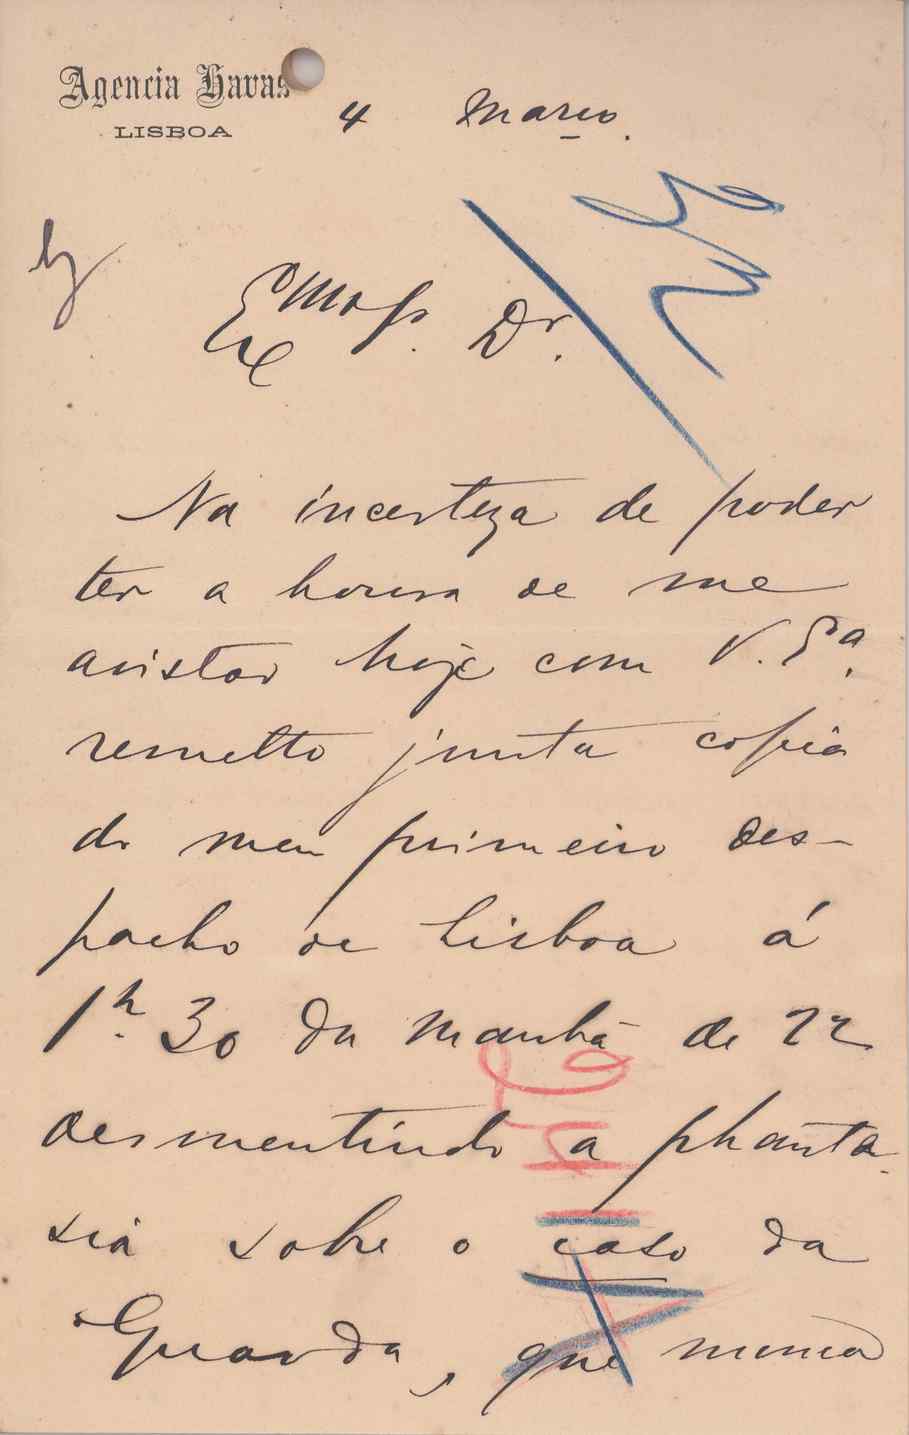 Agencia Havas
LISBOA
4 Março.
Exmo Sr. Dr.
Na incerteza de poder
ter a honra de me
avistar hoje com V. Exª.
remetto junta copia
do meu primeiro des-
pacho de Lisboa á
1h. 30 da manhã de 22
desmentindo a phanta-
sia sobre o caso da
Guarda, que nunca